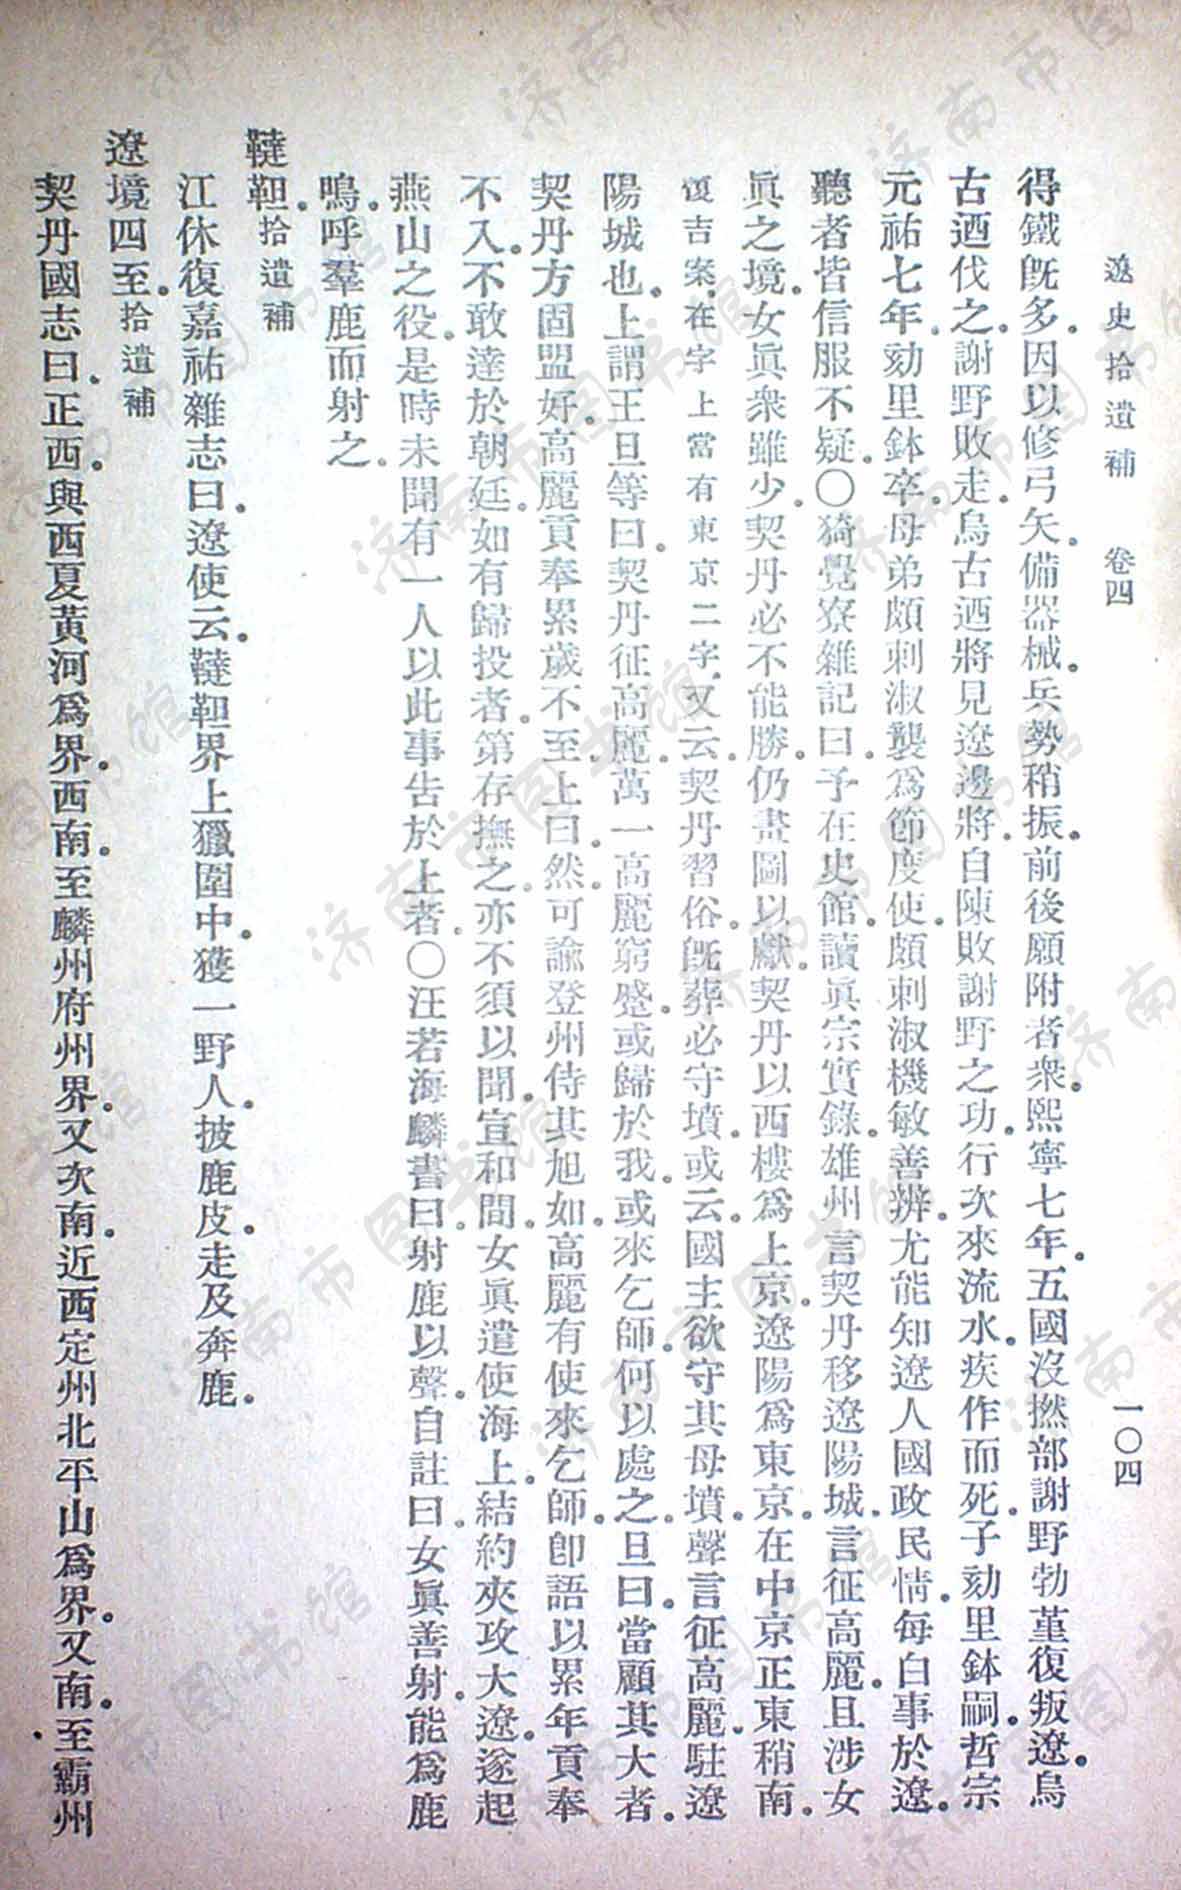 遼史拾遺補　卷四　一〇四
得鐵旣多。因以修弓矢。備器械。兵勢稍振。前後願附者衆。熙寧七年。五國沒撚部謝野勃堇復叛遼。烏
古迺伐之。謝野敗走。烏古迺將見遼邊將。自陳敗謝野之功。行次來流水。疾作而死。子劾里鉢嗣。哲宗
元祐七年。劾里鉢卒。母弟頗剌淑襲爲節度使。頗剌淑機敏善辨。尤能知遼人國政民情。每白事於遼。
聽者皆信服不疑。〇猗覺寮雜記曰。予在史館。讀眞宗實錄。雄州言契丹移遼陽城。言征高麗。且涉女
眞之境。女眞衆雖少。契丹必不能勝。仍畫圖以獻。契丹以西樓爲上京。遼陽爲東京。在中京正東稍南。
復吉案。在字上當有東京二字。又云。契丹習俗。旣葬必守墳。或云。國主欲守其母墳。聲言征高麗。駐遼
陽城也。上謂王旦等曰。契丹征高麗。萬一高麗窮蹙。或歸於我。或來乞師。何以處之。旦曰。當顧其大者。
契丹方固盟好。高麗貢奉累歲不至。上曰。然。可諭登州侍其旭。如高麗有使來乞師。卽語以累年貢奉
不入。不敢達於朝廷。如有歸投者。第存撫之。亦不須以聞。宣和間。女眞遣使海上。結約夾攻大遼。遂起
燕山之役。是時未聞有一人以此事告於上者。〇汪若海麟書曰。射鹿以聲。自註曰。女眞善射。能爲鹿
鳴。呼羣鹿而射之。
韃靼。拾遺補
江休復嘉祐雜志曰。遼使云。韃靼界上獵圍中。獲一野人。披鹿皮。走及奔鹿。
遼境四至。拾遺補
契丹國志曰。正西。與西夏黃河爲界。西南。至麟州府州界。又次南。近西定州北平山爲界。又南。至霸州